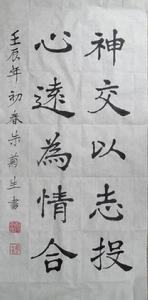 神交以志投
心遠為情合
壬辰年初春朱萬生書